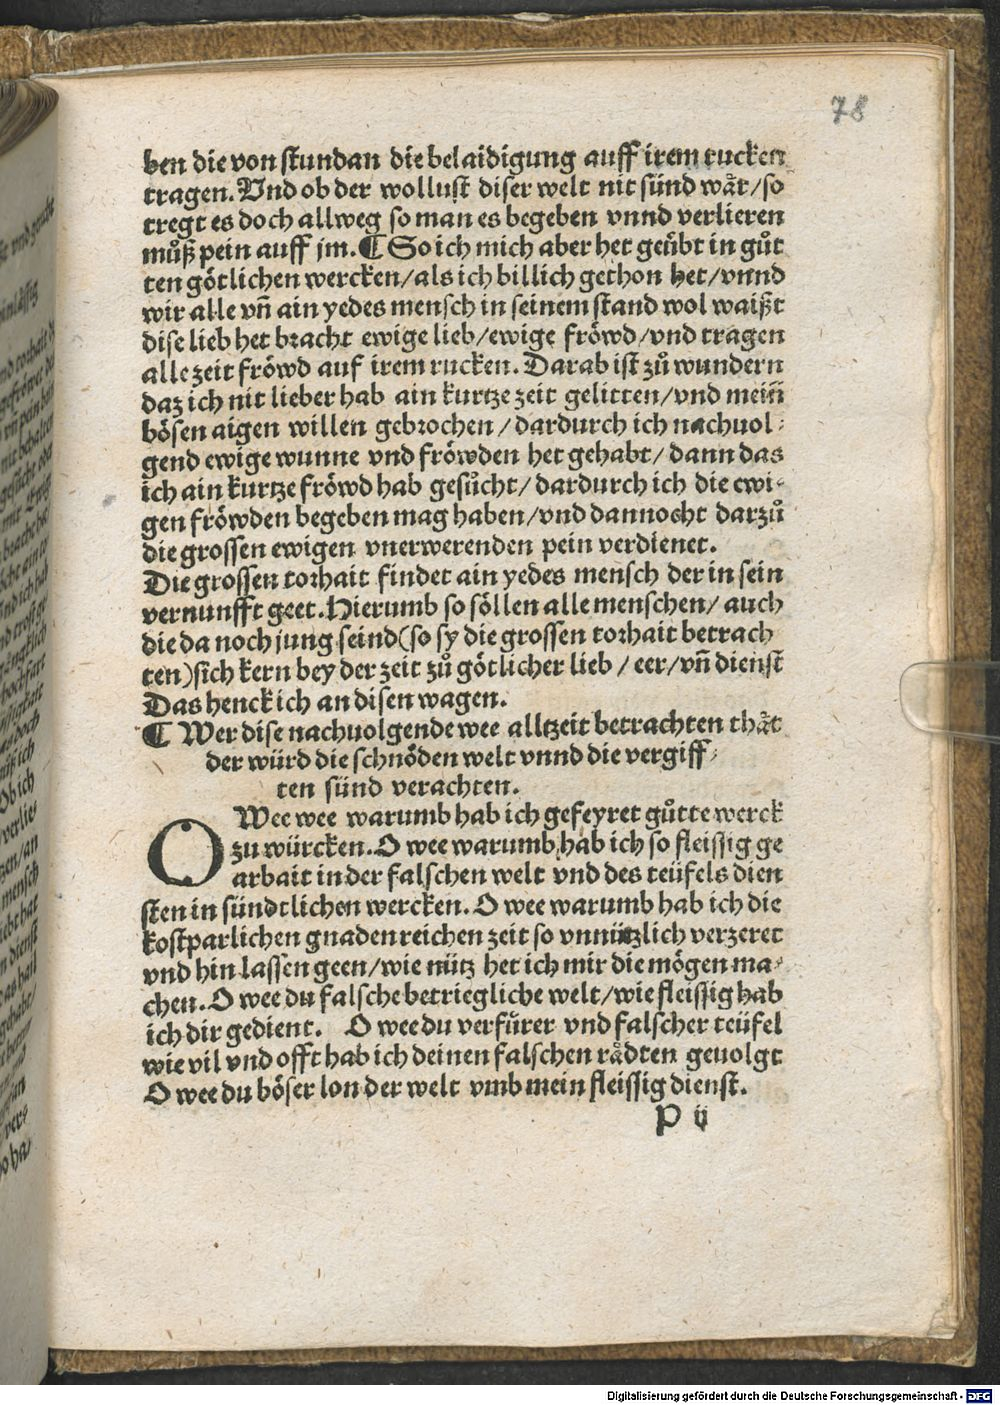 78
ben die von stundan die belaidigung auff irem rucken
tragen. Vnd ob der wollust diser welt nit sünd wår/so
tregt es doch allweg so man es begeben vnnd verlieren
můß pein auff jm. ¶ So ich mich aber het geübt in gůt
ten götlichen wercken/als ich billich gethon het/vnnd
wir alle vñ ain yedes mensch in seinem stand wol waißt
dise lieb het bracht ewige lieb/ewige fröwd/vnd tragen
alle zeit fröwd auf irem rucken. Darab ist zů wundern
daz ich nit lieber hab ain kurtze zeit gelitten/vnd meiñ
bösen aigen willen gebrochen/dardurch ich nachuol-
gend ewige wunne vnd fröwden het gehabt/dann das
ich ain kurtze fröwd hab gesůcht/dardurch ich die ewi-
gen fröwden begeben mag haben/vnd dannocht darzů
die grossen ewigen vnerwerenden pein verdienet.
Die grossen torhait findet ain yedes mensch der in sein
vernunfft geet. Hierumb so söllen alle menschen/auch
die da noch jung seind(so sy die grossen torhait betrach
ten)sich kern bey der zeit zů götlicher lieb/eer/vñ dienst
Das henck ich an disen wagen.
¶ Wer dise nachuolgende wee alltzeit betrachten thåt
der würd die schnöden welt vnnd die vergiff-
ten sünd verachten.
O Wee wee warumb hab ich gefeyret gůtte werck
zu würcken. O wee warumb hab ich so fleissig ge
arbait in der falschen welt vnd des teüfels dien
sten in sündtlichen wercken. O wee warumb hab ich die
kostparlichen gnadenreichen zeit so vnnützlich verzeret
vnd hin lassen geen/wie nütz het ich mir die mögen ma-
chen. O wee du falsche betriegliche welt/wie fleissig hab
ich dir gedient. O wee du verfůrer vnd falscher teüfel
wie vil vnd offt hab ich deinen falschen rådten geuolgt
O wee du böser lon der welt vmb mein fleissig dienst.
P ij
Digitalisierung gefördert durch die Deutsche Forschungsgemeinschaft - DFG